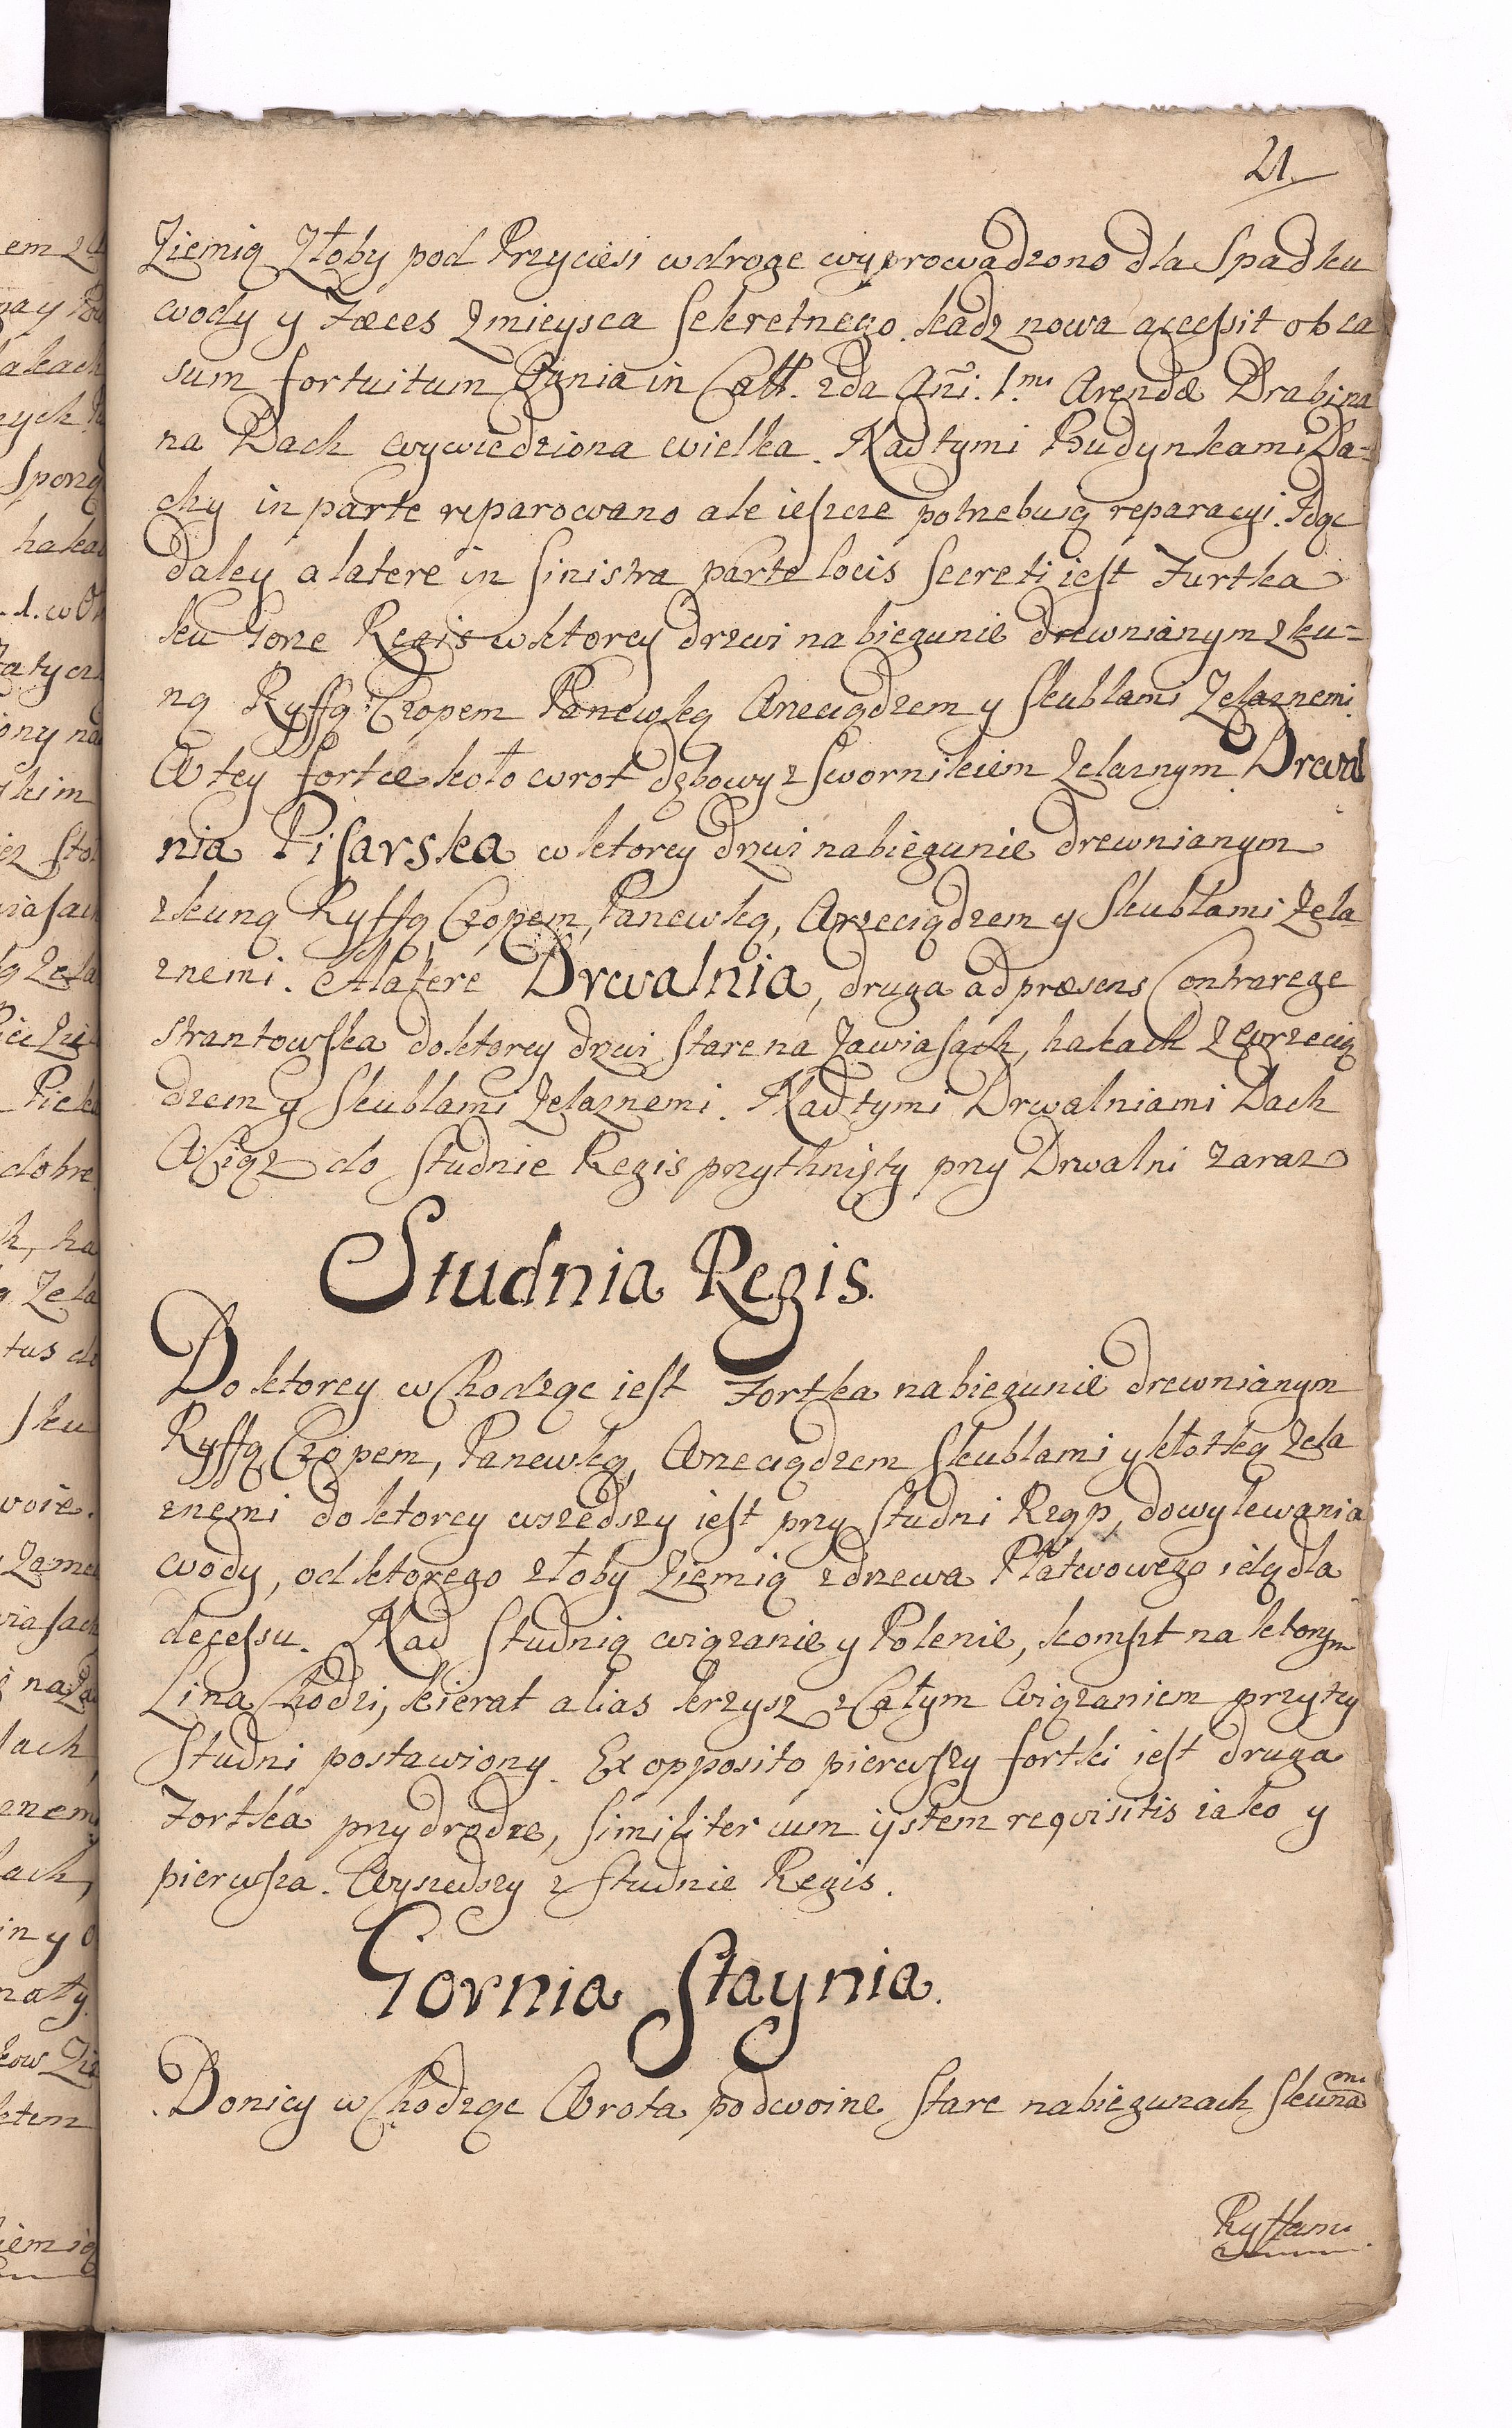 21.
Ziemią Złoby pod Przyciesi wdroge wyprowadzono dla Spadku
wody y Fæces Zmieysca Sekretnego. kadz nowa accessit ob ca
sum fortuitum Ognia in Cast. 2da Anñi. 1mi Arendæ Drabina
na Dach wywiedziona wielka. Nadtymi Budynkami Da=
chy in parte reparowano ale ieszcze potrzebuią reparacyi. Idąc
daley a latere in Sinistra parte locis Secreti iest Furtka
ku Gorze Regis wktorey drzwi nabiegunie drewnianym zku=
ną Ryffą Czopem Panewką Wrzeciądzem y Skublami Zelaznemi.
W tey fortce koło wrot dębowy z Swornikiem Zelaznym. Drwal
nia Pisarska wktorey drzwi nabiegunie drewnianym
zkuną Ryffą, Czopem, Panewką, Wrzeciądzem y Skublami Zela
znemi. A latere Drwalnia, druga ad præsens Contrarege
strantowska doktorey drzwi Stare na Zawiasach, hakach Zewrzecią
dzem y Skublami Zelaznemi. Nad tymi Drwalniami Dach
Wiąz do Studnie Regis przytknięty przy Drwalni zaraz
Studnia Regis.
Doktorey wchodząc iest Fortka nabiegunie drewnianym
Ryffą, Czopem, Panewką, Wrzeciądzem Skublami y kłotką Zela
znemi doktorey wszedszy iest przy Studni Rząp, dowylewania
wody, odktorego złoby Ziemią zdrzewa Płatwowego idą dla
decessu. Nad Studnią wiązanie y Polenie, kompst na ktorym
Lina Chodzi, kierat alias krzysz zCałym Wiązaniem przytey
Studni postawiony. Ex opposito pierwszy fortki iest druga
Fortka przydrodze, Similiter cum ijstem requisitis iako y
pierwsza. Wyszedszy z Studnie Regis.
Gornia Staynia.
Donicy wchodząc Wrota podwoine Stare nabiegunach Skunami
Ryffami